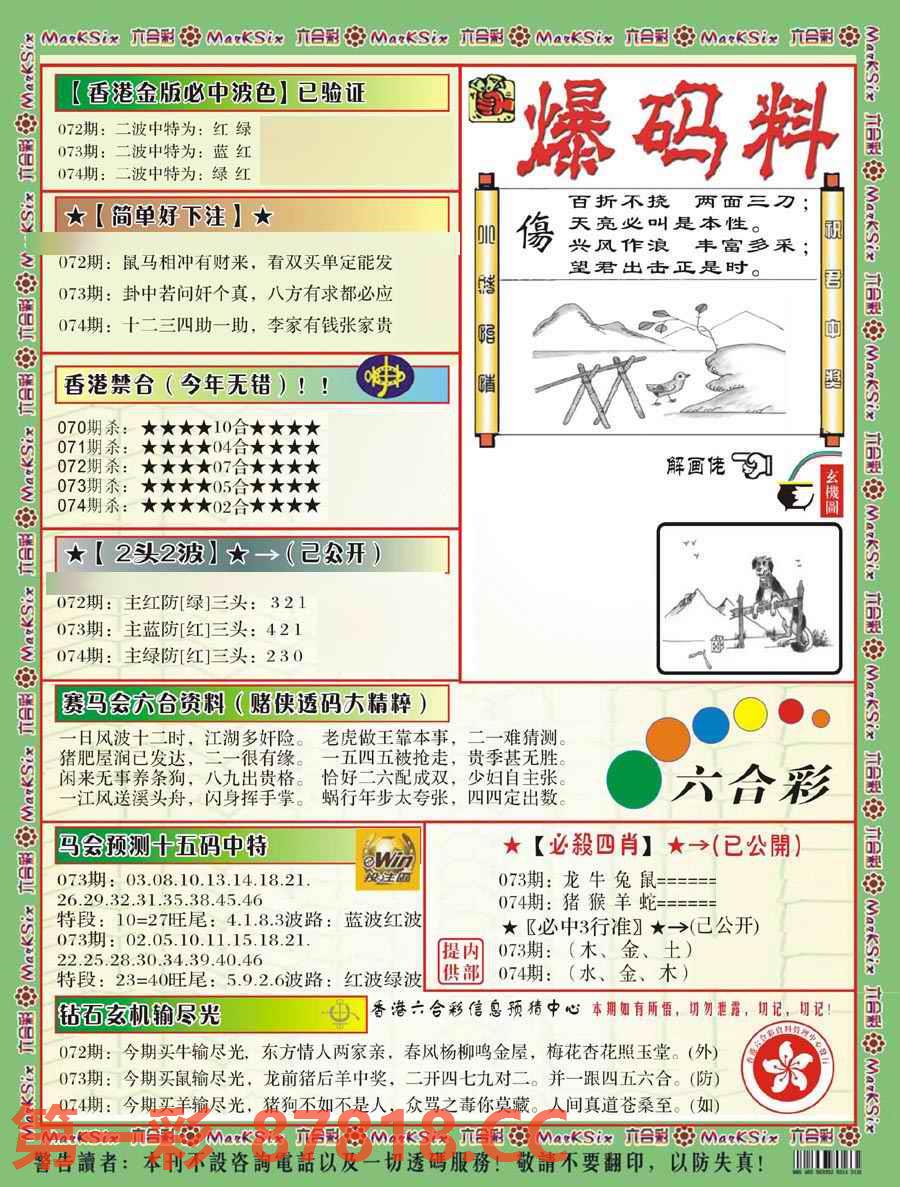 MarKSix 六合彩 MarKSix 六合彩 MarKSix 六合彩 MarKSix 六合彩 MarKSix 六合彩
【香港金版必中波色】已验证
072期：二波中特为：红 绿
073期：二波中特为：蓝 红
074期：二波中特为：绿 红
★【简单好下注】★
072期：鼠马相冲有财来，看双买单定能发
073期：卦中若问奸个真，八方有求都必应
074期：十二三四助一助，李家有钱张家贵
香港禁合（今年无错）！！
070期杀：★★★★10合★★★★
071期杀：★★★★04合★★★★
072期杀：★★★★07合★★★★
073期杀：★★★★05合★★★★
074期杀：★★★★02合★★★★
★【 2头2波】★→（已公开）
072期：主红防[绿]三头：321
073期：主蓝防[红]三头：421
074期：主绿防[红]三头：230
爆码料
傷
百折不挠　两面三刀；
天亮必叫是本性。
兴风作浪　丰富多采；
望君出击正是时。
祝君中奖
解画佬
玄機圖
赛马会六合资料（赌侠透码大精粹）
一日风波十二时，江湖多奸险。 老虎做王靠本事，二一难猜测。
猪肥屋润已发达，二一很有缘。 一五四五被抢走，贵季甚无胜。
闲来无事养条狗，八九出贵格。 恰好二六配成双，少妇自主张。
一江风送溪头舟，闪身挥手掌。 蜗行年步太夸张，四四定出数。
六合彩
马会预测十五码中特
eWin
投注區
073期：03.08.10.13.14.18.21.
26.29.32.31.35.38.45.46
特段：10=27旺尾：4.1.8.3波路：蓝波红波
073期：02.05.10.11.15.18.21.
22.25.28.30.34.39.40.46
特段：23=40旺尾：5.9.2.6波路：红波绿波
★【必殺四肖】★→(已公開)
073期：龙 牛 兔 鼠======
074期：猪 猴 羊 蛇======
★〖必中3行准〗★→(已公开)
073期：（木、金、土）
074期：（水、金、木）
提内
供部
钻石玄机输尽光
香港六合彩信息预猜中心 本期如有所悟，切勿泄露，切记，切记！
072期：今期买牛输尽光，东方情人两家亲，春风杨柳鸣金屋，梅花杏花照玉堂。(外)
073期：今期买鼠输尽光，龙前猪后羊中奖，二开四七九对二。并一跟四五六合。(防)
074期：今期买羊输尽光，猪狗不如不是人，众骂之毒你莫藏。人间真道苍桑至。(如)
第一彩 87818.CC
MarKSix 六合彩 MarKSix 六合彩 MarKSix 六合彩 MarKSix 六合彩 MarKSix 六合彩
警告讀者：本刊不設咨詢電話以及一切透碼服務！敬請不要翻印，以防失真！